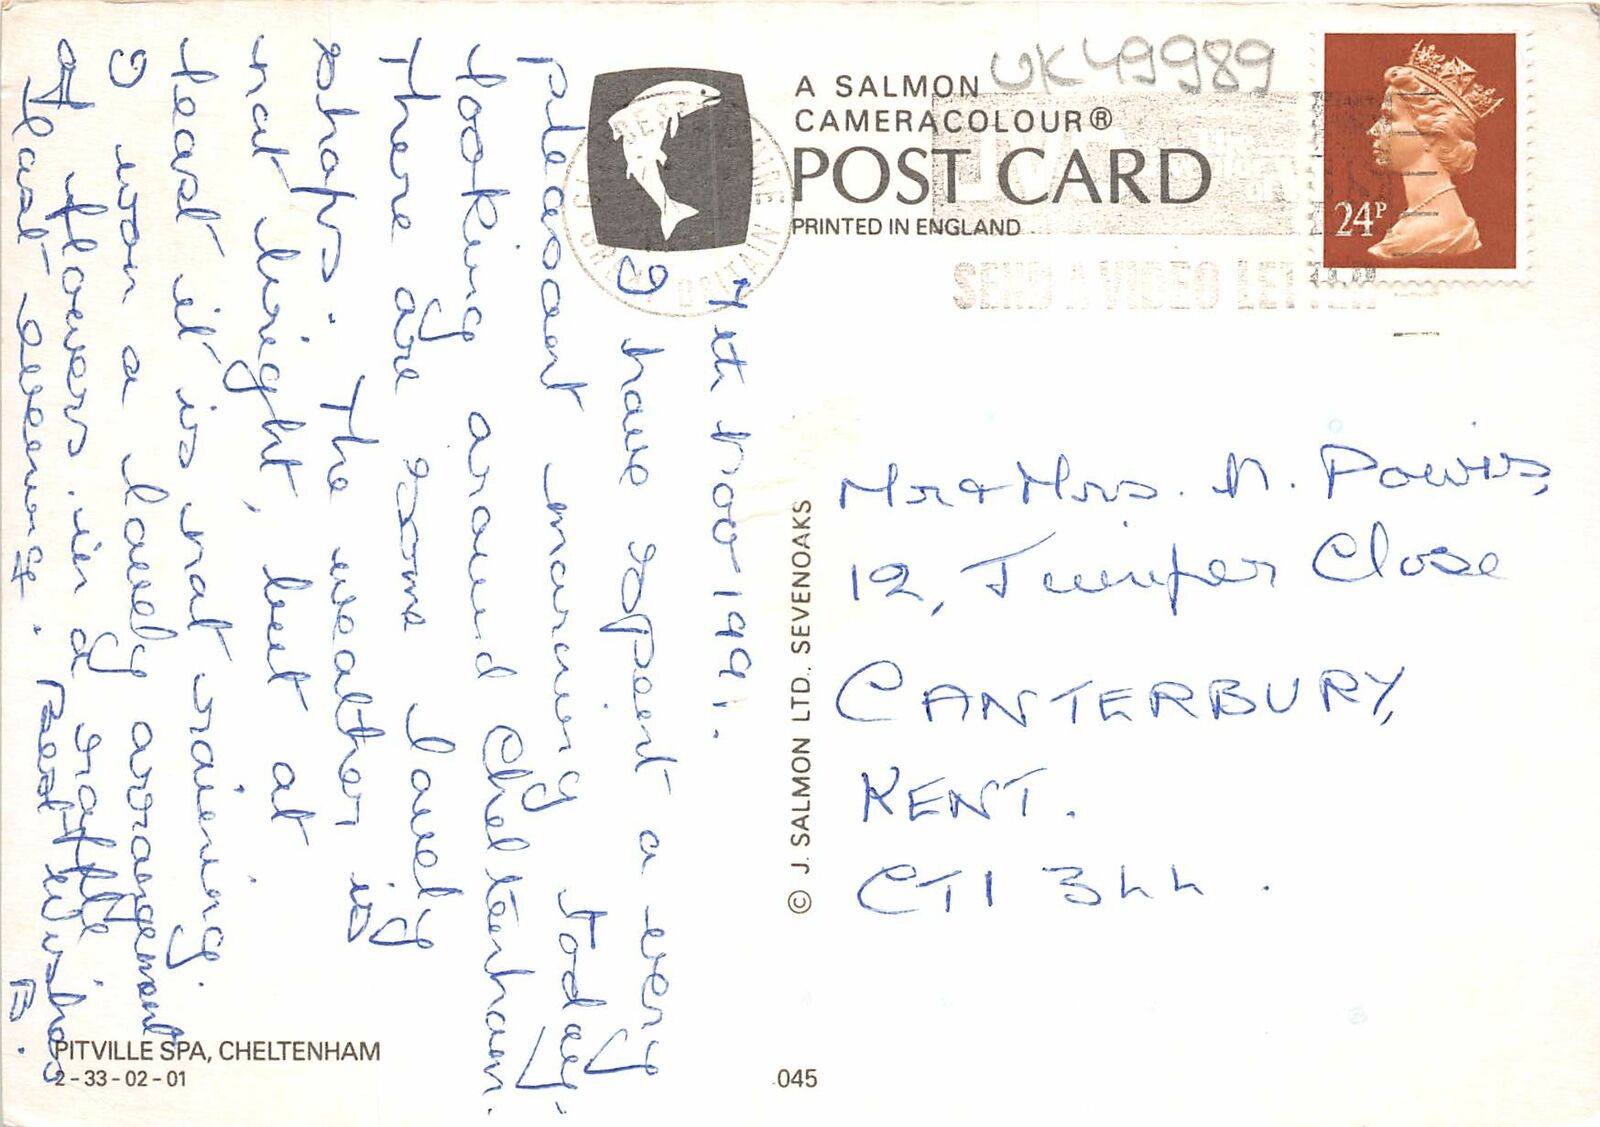 7th Nov 1991.
I have spent a very
pleasant morning today,
looking around Cheltenham.
There are some lovely
shops. The weather is
not bright, but at
least it is not raining.
I won a lovely arrangement
of flowers in a raffle
last evening.
Best Wishes
B.
PITVILLE SPA, CHELTENHAM
2-33-02-01
A SALMON
CAMERACOLOUR®
POST CARD
PRINTED IN ENGLAND
UK49989
24P
GREAT BRITAIN
SEND A VIDEO LETTER
© J. SALMON LTD. SEVENOAKS
045
Mr & Mrs. N. Powis,
12, Juniper Close
CANTERBURY,
KENT.
CT1 3LL.